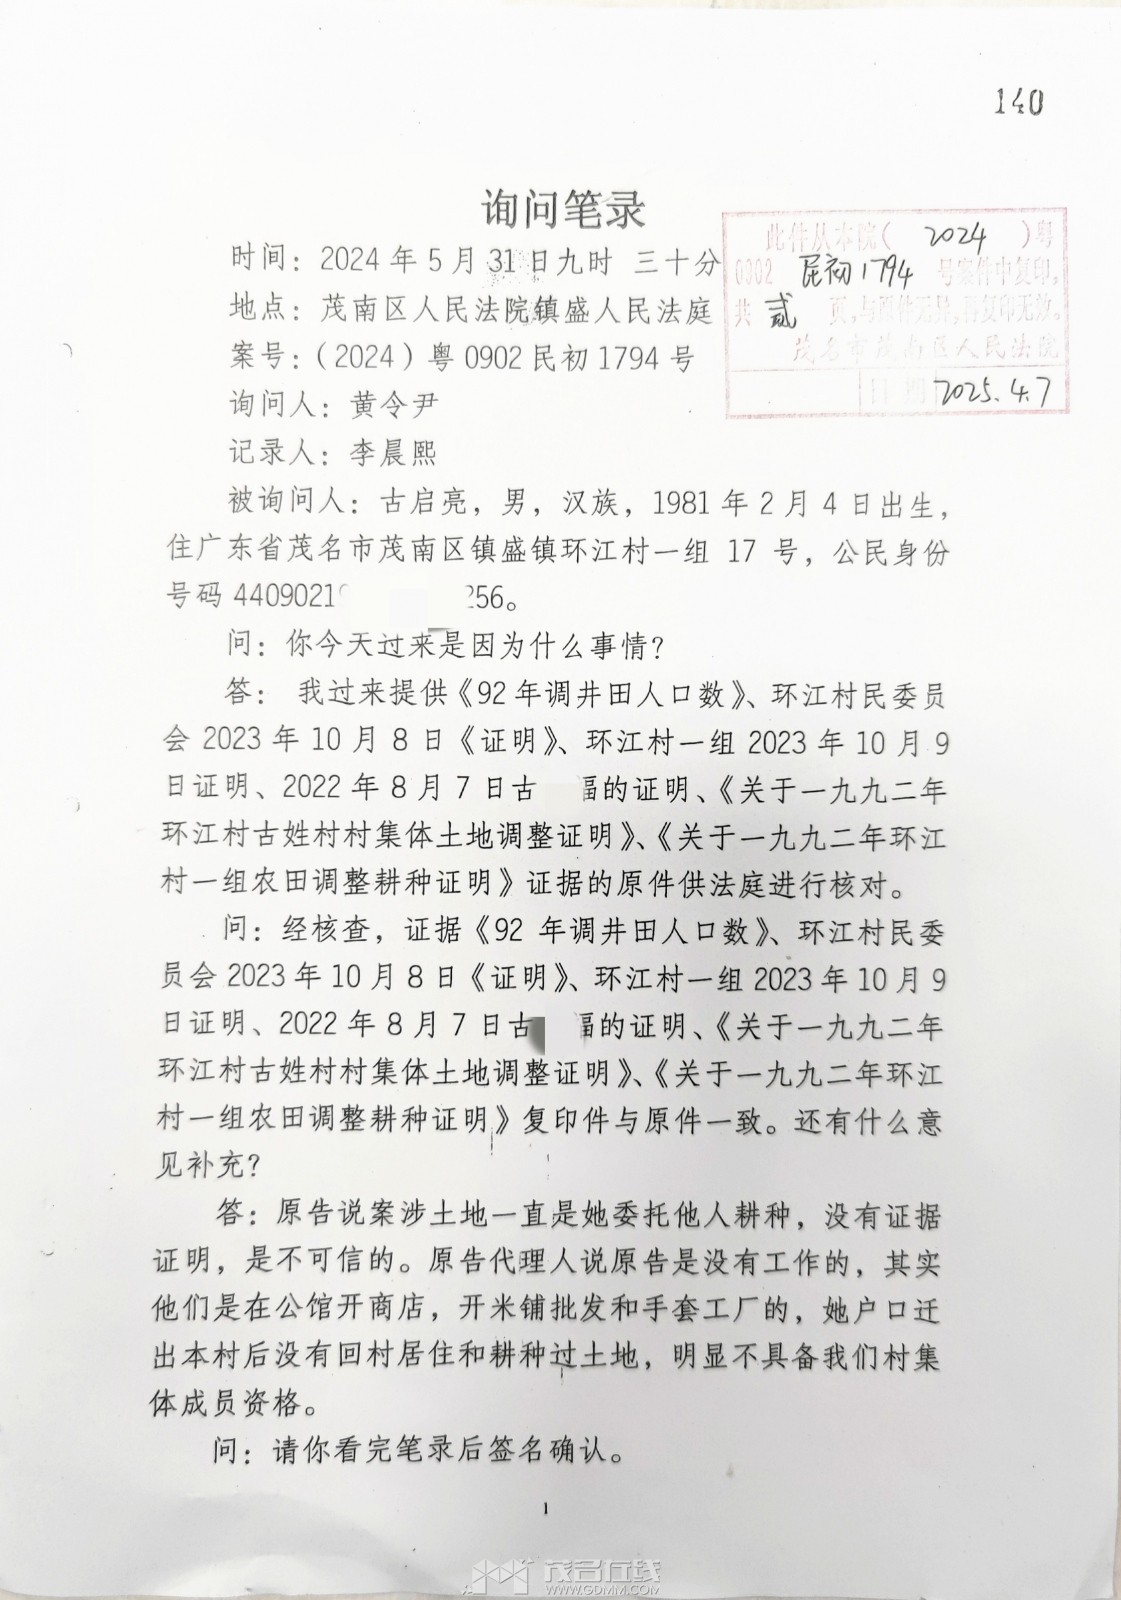 140
询问笔录
此件从本院( 2024 )粤
0902 民初1794 号案件中复印,
共 贰 页,与原件无异,再复印无效。
茂名市茂南区人民法院
日期 2025.4.7
时间：2024年5月31日九时 三十分
地点：茂南区人民法院镇盛人民法庭
案号：（2024）粤0902民初1794号
询问人：黄令尹
记录人：李晨熙
被询问人：古启亮，男，汉族，1981年2月4日出生，
住广东省茂名市茂南区镇盛镇环江村一组 17 号，公民身份
号码4409021 256。
问：你今天过来是因为什么事情？
答： 我过来提供《92年调井田人口数》、环江村民委员
会2023年10月8日《证明》、环江村一组2023年10月9
日证明、2022年8月7日古 福的证明、《关于一九九二年
环江村古姓村村集体土地调整证明》、《关于一九九二年环江
村一组农田调整耕种证明》证据的原件供法庭进行核对。
问：经核查，证据《92 年调井田人口数》、环江村民委
员会2023年10月8日《证明》、环江村一组2023年10月9
日证明、2022年8月7日古 福的证明、《关于一九九二年
环江村古姓村村集体土地调整证明》、《关于一九九二年环江
村一组农田调整耕种证明》复印件与原件一致。还有什么意
见补充？
答：原告说案涉土地一直是她委托他人耕种，没有证据
证明，是不可信的。原告代理人说原告是没有工作的，其实
他们是在公馆开商店，开米铺批发和手套工厂的，她户口迁
出本村后没有回村居住和耕种过土地，明显不具备我们村集
体成员资格。
问：请你看完笔录后签名确认。
1
茂名在线
WWW.GDMM.COM